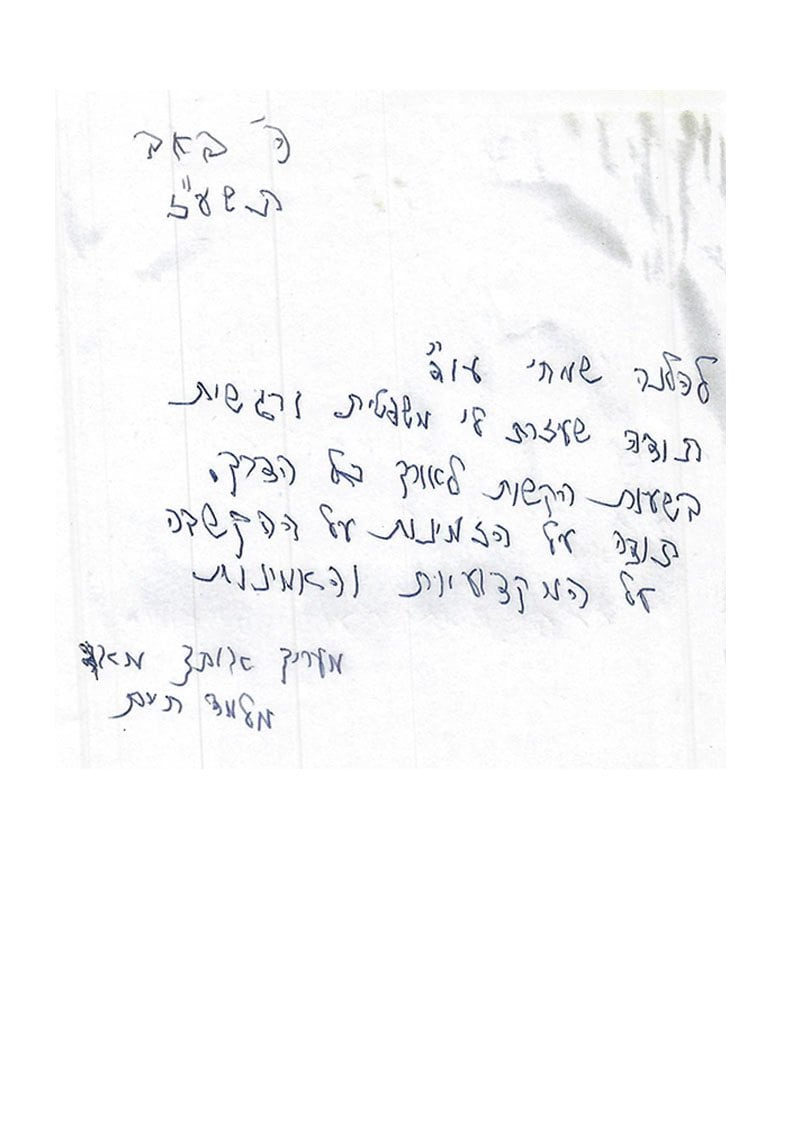 ה' באב
תשע"ז
להלנה שמחי עו"ד
תודה שעזרת לי משפטית ורגשית
בשעות הקשות לאורך כל הדרך.
תודה על הזמינות על ההקשבה
על המקצועיות והאמינות
מעריך אותך מאוד
מלמד